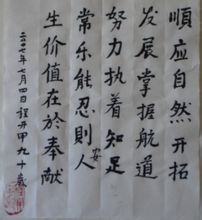 順应自然开拓
发展掌握航道
努力执着知足
常乐能忍則人安
生价值在於奉献
二〇〇七年七月四日程开甲九十歲